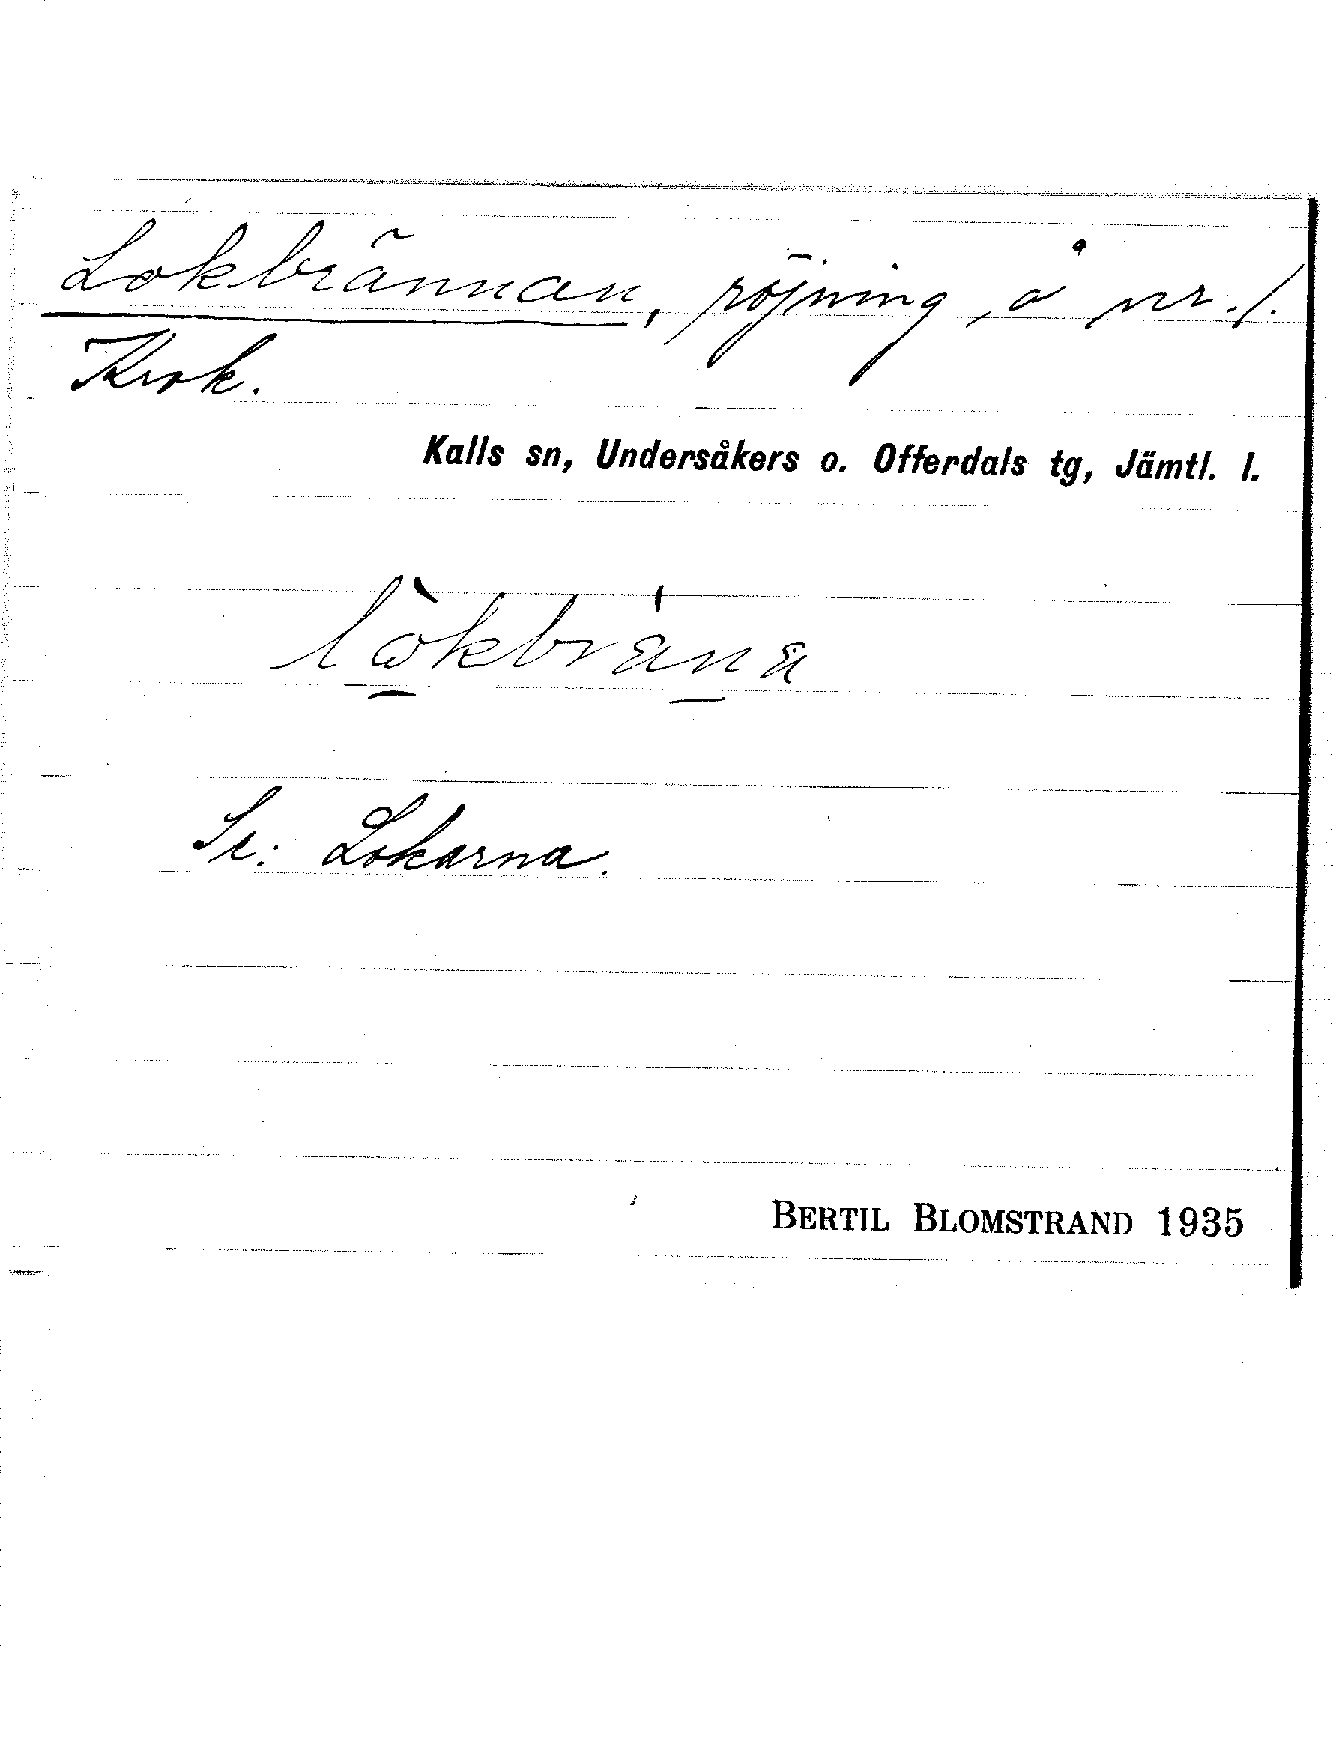 Lokbrännan, röjning, å nr. 1.
Krok.
Kalls sn, Undersåkers o. Offerdals tg, Jämtl. l.
Se: Lokarna.
BERTIL BLOMSTRAND 1935